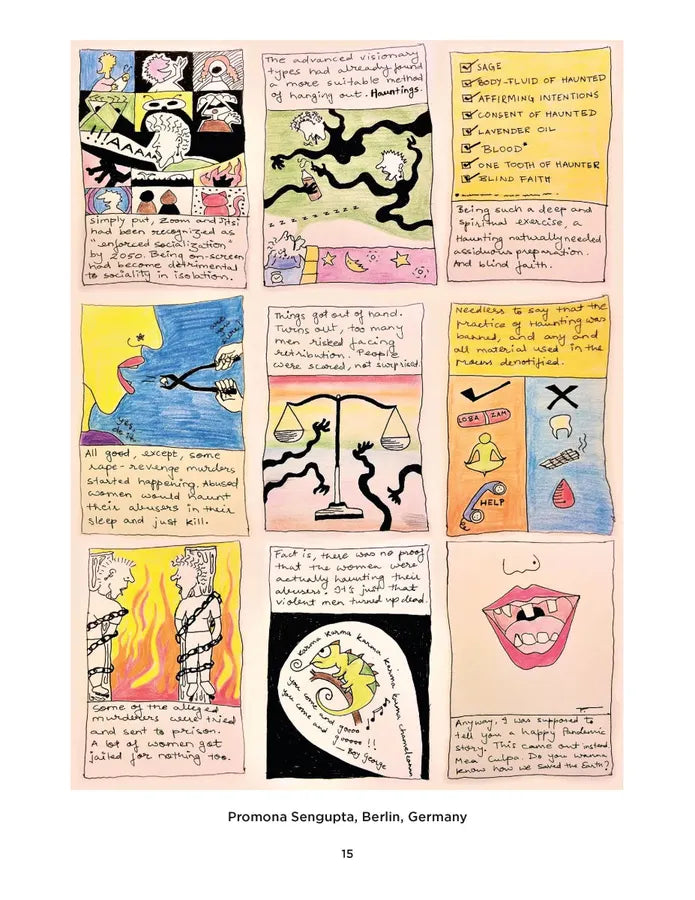 !!!AAAAA
Simply put, Zoom and Jitsi
had been recognized as
"enforced socialization"
by 2050. Being on-screen
had become detrimental
to sociality in isolation.
The advanced visionary
types had already found
a more suitable method
of hanging out. Hauntings.
z z z z z z z z z z
SAGE
BODY-FLUID OF HAUNTED
AFFIRMING INTENTIONS
CONSENT OF HAUNTED
LAVENDER OIL
"BLOOD"*
ONE TOOTH OF HAUNTER
BLIND FAITH
Being such a deep and
spiritual exercise, a
Haunting naturally needed
assiduous preparation.
And blind faith.
are
you
sure?
yes,
do it
All good, except, some
rape-revenge murders
started happening. Abused
women would haunt
their abusers in their
sleep and just kill.
Things got out of hand.
Turns out, too many
men risked facing
retribution. People
were scared, not surprised.
Needless to say that the
practice of Haunting was
banned, and any and
all material used in the
denotified.
ZAM
HELP
Some of the alleged
murderers were tried
and sent to prison.
A lot of women got
jailed for nothing too.
Fact is, there was no proof
that the women were
actually haunting their
abusers. It's just that
violent men turned up dead.
Karma Karma Karma Karma Karma Chameleon
you come and gooo
you come and goooo!!
— Boy George
Anyway, I was supposed to
tell you a happy Pandemic
story. This came out instead.
Mea Culpa. Do you wanna
know how we saved the Earth?
Promona Sengupta, Berlin, Germany
15